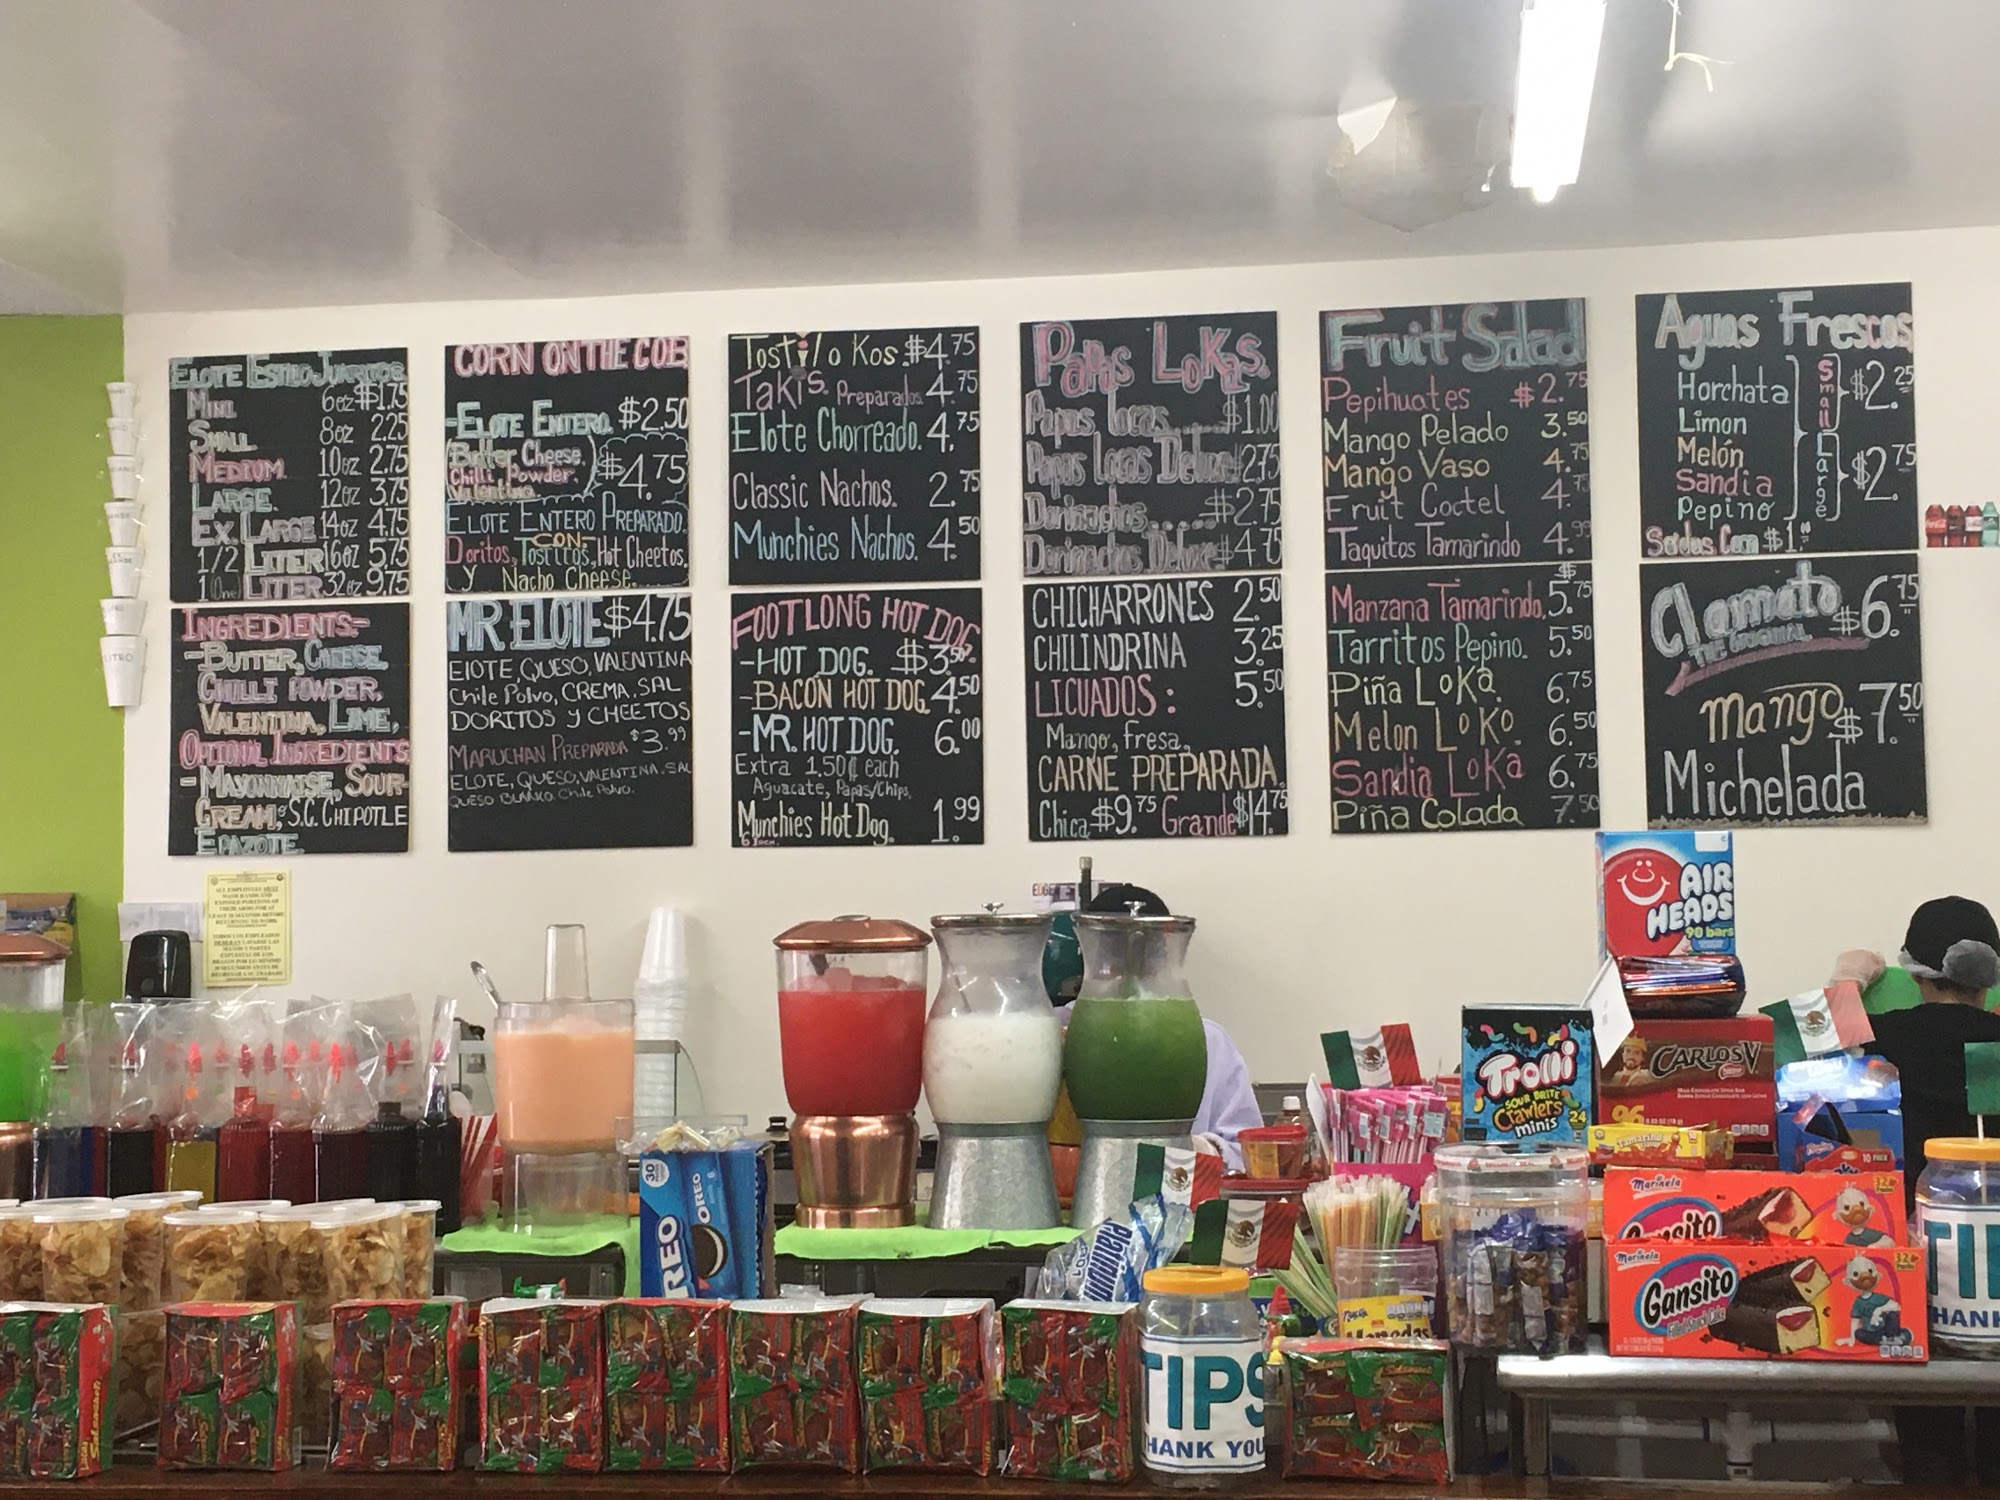 ELOTE ESTILO JUARITOS
MINI. 6oz $1.75
SMALL 8oz 2.25
MEDIUM. 10oz 2.75
LARGE. 12oz 3.75
EX. LARGE 14oz 4.75
1/2 LITER 16oz 5.75
1 (One) LITER 32oz 9.75
INGREDIENTS:-
-BUTTER, CHEESE
CHILLI POWDER,
VALENTINA, LIME,
OPTIONAL INGREDIENTS
-MAYONNAISE, SOUR-
CREAM, S.C. CHIPOTLE
EPAZOTE.
CORN ON THE COB
-ELOTE ENTERO. $2.50
Butter Cheese,
Chilli Powder,
Valentina
$4.75
ELOTE ENTERO PREPARADO.
-CON-
Doritos, Tostitos, Hot Cheetos.
y Nacho Cheese.
MR. ELOTE $4.75
ElOTE, QUESO, VALENTINA
Chile Polvo, CREMA. SAL
DORITOS y CHEETOS
MARUCHAN PREPARADA $3.99
ELOTE, QUESO, VALENTINA. SAL
QUESO BLANCO. Chile Polvo.
Tostilo Kos. $4.75
TAKIS. Preparados. 4.75
Elote Chorreado. 4.75
Classic Nachos. 2.75
Munchies Nachos. 4.50
FOOTLONG HOT DOG
-HOT DOG. $3.50
-BACON HOT DOG. 4.50
-MR. HOT DOG. 6.00
Extra 1.50¢ each
Aguacate, Papas/Chips.
Munchies Hot Dog. 1.99
6 INCH.
Papas LoKas.
Papas locas...... $1.00
Papas locas Deluxe $2.75
Dorinachos...... $2.75
Dorinachos Deluxe $4.75
CHICHARRONES 2.50
CHILINDRINA 3.25
LICUADOS: 5.50
Mango, Fresa,
CARNE PREPARADA.
Chica $9.75 Grande $14.75
Fruit Salad
Pepihuates $2.75
Mango Pelado 3.50
Mango Vaso 4.75
Fruit Coctel 4.75
Taquitos Tamarindo 4.99
Manzana Tamarindo. $5.75
Tarritos Pepino. 5.50
Piña LoKa. 6.75
Melon LoKo. 6.50
Sandia LoKa 6.75
Piña Colada 7.50
Aguas Frescas
Horchata
Limon
Melón
Sandia
Pepino
Small $2.25
Large $2.75
Sodas Can $1.00
Clamato $6.75
THE ORIGINAL
Mango $7.50
Michelada
LITRO
ALL EMPLOYEES MUST
WASH HANDS AND
EXPOSED PORTIONS OF
THEIR ARMS FOR AT
LEAST 20 SECONDS BEFORE
RETURNING TO WORK
TODOS LOS EMPLEADOS
DEBERAN LAVARSE LAS
MANOS Y PARTES
EXPUESTAS DE LOS
BRAZOS POR LO MINIMO
20 SEGUNDOS ANTES DE
REGRESAR A SU TRABAJO
AIR
HEADS
90 bars
Trolli
SOUR BRITE
Crawlers
minis
24
CARLOS V
Nestle
96
Tamarind
10 PACK
30
OREO
OREO
Marinela
32
Gansito
Marinela
32
Gansito
Filled Snack Cake
TIPS
THANK YOU
TI
HANK